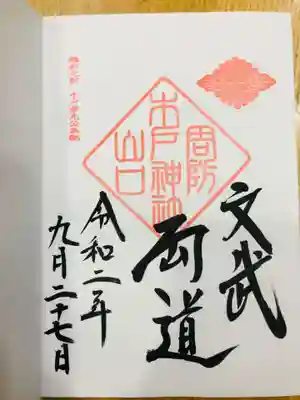 文武
両道
周防
木戸神社
山口
令和二年
九月二十七日